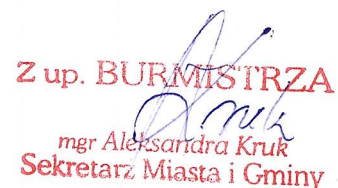 Z up. BURMISTRZA
mgr Aleksandra Kruk
Sekretarz Miasta i Gminy